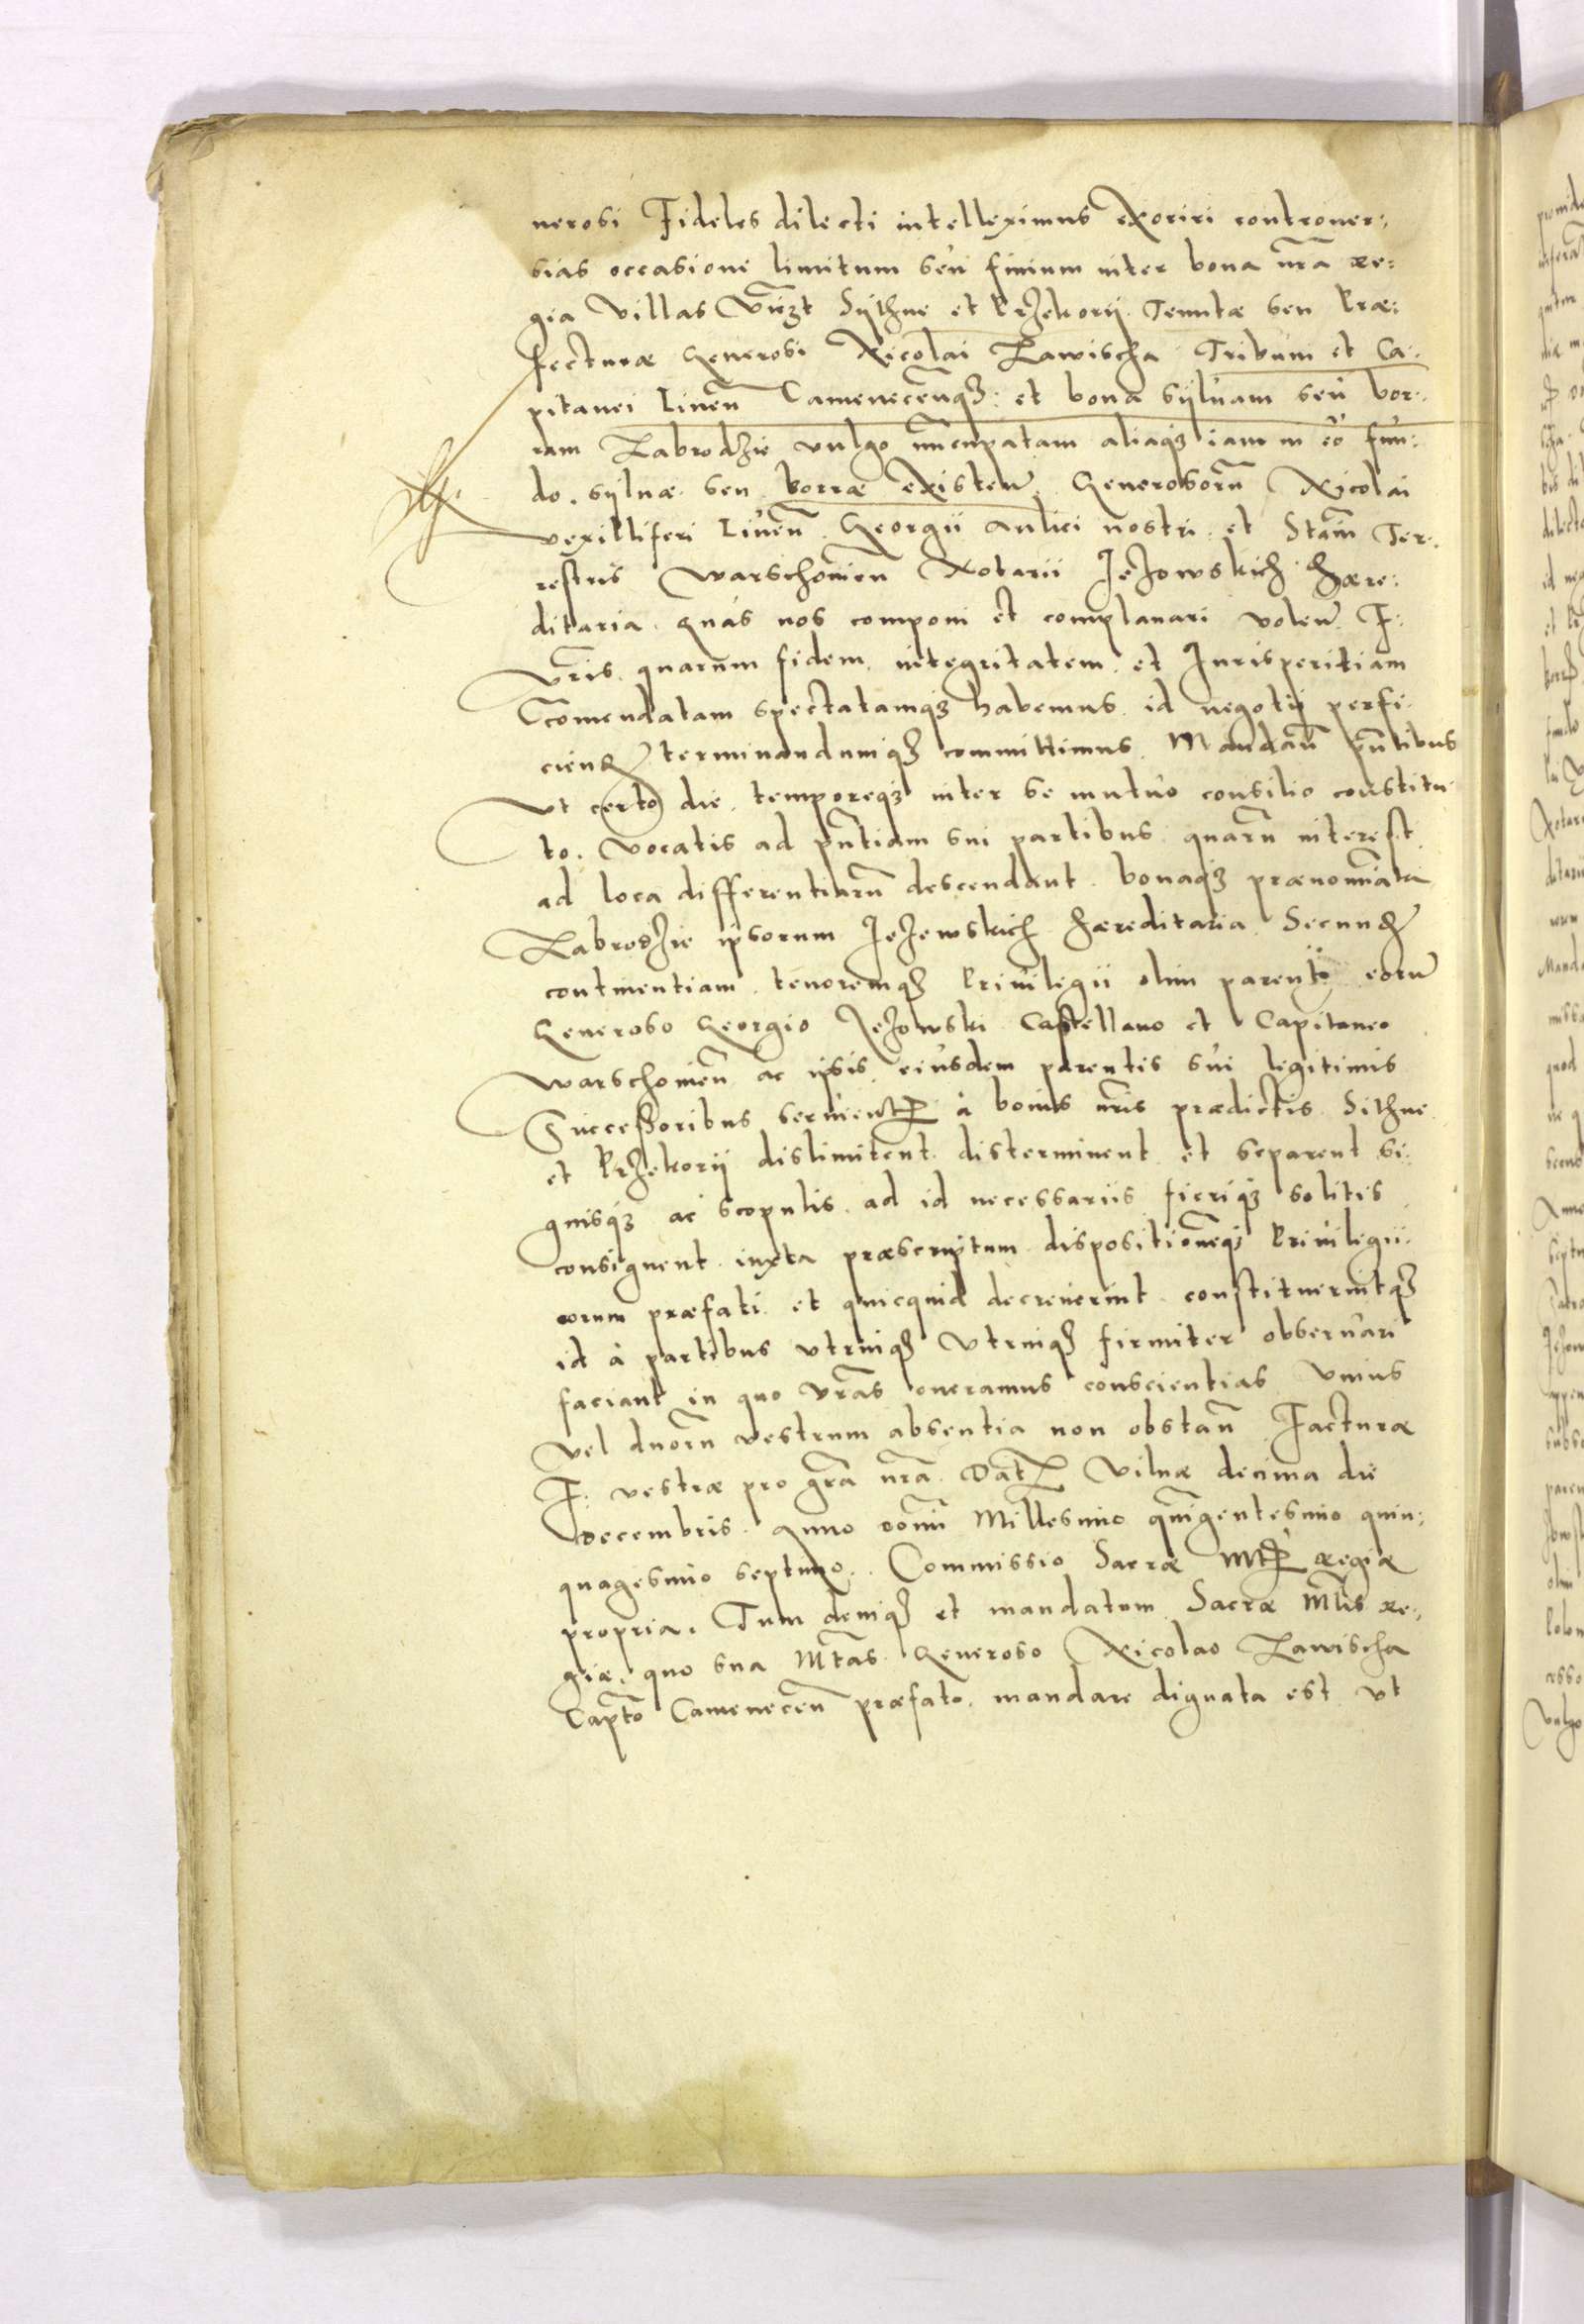 nerosi Fideles dilecti intelleximus exoriri controver:
sias occasione limitum seu finium inter bona nra Re:
gia Villas vidzt Sijthne et Przekorij Tenutæ seu Præ:
fecturæ Generosi Nicolai Zawischa Tribuni et Ca:
pitanei Liven Camenecenq3: et bona sylvam seu bor:
ram Zabrodzie vulgo nuncupatam aliaq3 iam in eo fun:
do sylvæ seu borræ existen Generosoru Nicolai
vexilliferi Liven Georgii aulici nostri et Stani Ter:
restris Warschovien Notarii Jezowskich hære:
ditaria quas nos componi et complanari volen F:
Vris quarum fidem integritatem et Iurisperitiam
Comendatam spectatamq3 habemus id negotij perfi:
ciend terminandumq3 committimus Mandan pntibus
Ut certo die temporeq3 inter se mutuo consilio constitu:
to. vocatis ad pntiam sui partibus quaru interest
ad loca differentiaru descendant bonaq3 prænomiata
Zabrodzie ipsorum Jezewskich hæreditaria Secund
continentiam tenoremq3 Privilegii olim parenti eoru
Generoso Georgio Jezowski Castellano et Capitaneo
Warschovien ac ipsis eiusdem parentis sui legitimis
Successoribus servien à bonis nris prædictis Sithne
et Przekorij dislimitent disterminent et separent si:
gnisq3 ac scopulis ad id necessariis fieriq3 solitis
consignent iuxta præscriptum dispositioneq3 Privilegii
eorum præfati et quicquid decreverint constituerintq3
id à partibus utrinq3 utrinq3 firmiter observari
faciant in quo vras oneramus conscientias Unius
vel duoru vestrum absentia non obstan Facturæ
F: vestræ pro gra nra Dat Vilnæ decima die
Decembris Anno domi Millesimo quingentesimo quin:
quagesimo septimo. Commissio Sacræ Mtis Regiæ
propria. Tum deniq3 et mandatum Sacræ Mtis Re:
giæ, quo sua Mtas Generoso Nicolao Zawischa
Capto Camenecen præfato mandare dignata est ut